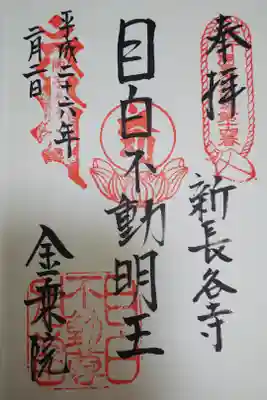 奉拝
新長谷寺
目白不動明王
平成二十六年
二月二日
金乗院